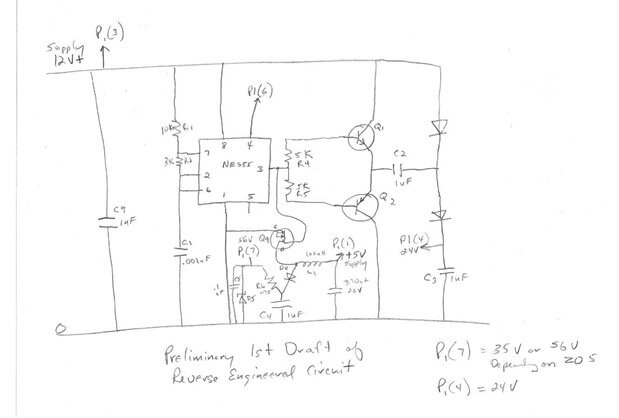 P1(3)
Supply
12V+
P1(6)
10K R1
8 4
7
NE555
3
3K R2
2
6
1 5
5K
R4
5K
R5
Q1
C2
1uF
Q2
C9
1uF
C1
.001uF
56V
P1(7)
Q9
100uH
L1
P1(1)
+5V
Supply
P1(4)
24V
D5
C4 1uF
370uF
25V
C3 1uF
0
Preliminary 1st Draft of
Reverse Engineered Circuit
P1(7) = 35V or 56V
Depending on ZD5
P1(4) = 24V